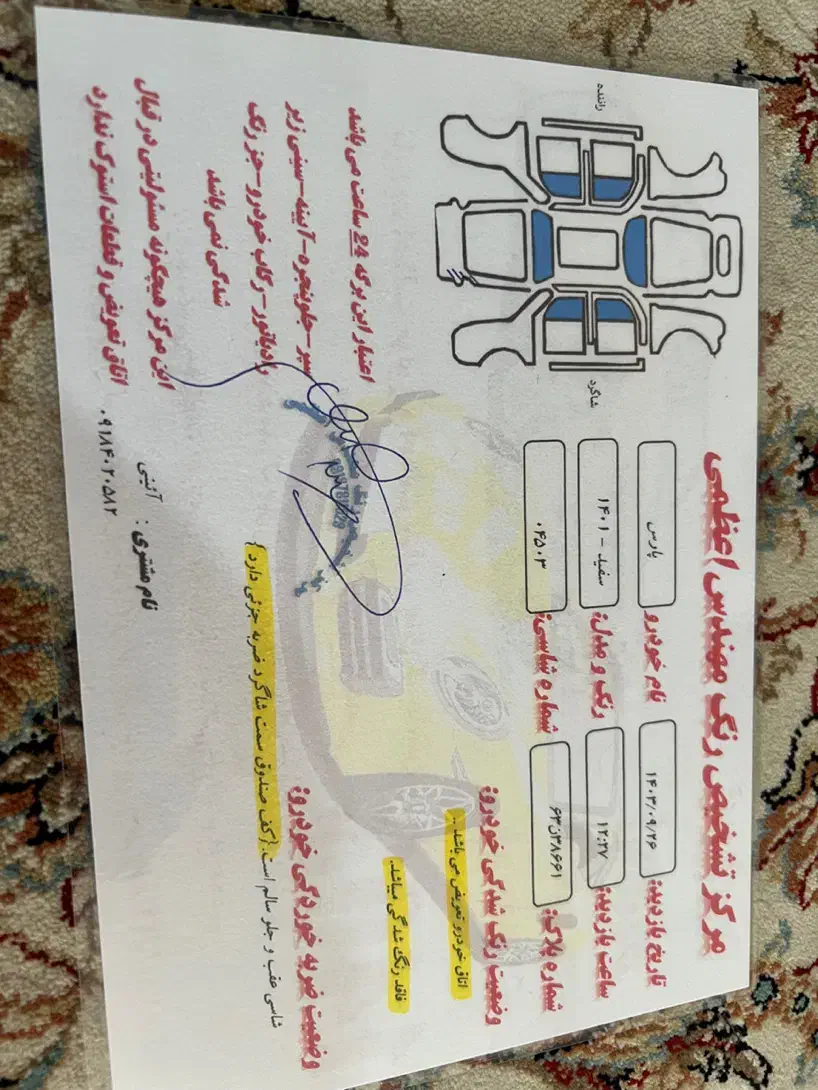 مرکز تشخیص رنگ مهندس اعظمی
تاریخ بازدید: ۱۴۰۳/۰۹/۲۶
نام خودرو پارس
ساعت بازدید: ۱۲:۲۷
رنگ و مدل: سفید - ۱۴۰۱
شماره پلاک: ۶۳ن۳۸۶۶۱
شماره شاسی: ۰۴۵۰۳
راننده
شاگرد
وضعیت رنگ شدگی خودرو:
اتاق خودرو تعویض می باشد ..
فاقد رنگ شدگی میباشد.
اعتبار این برگه 24 ساعت می باشد
وضعیت ضربه خوردگی خودرو:
شاسی عقب و جلو سالم است.{کف صندوق سمت شاگرد ضربه جزئی دارد}
سپر-جلوپنجره-آینه-سینی زیر
رادیاتور-رکاب خودرو-جز رنگ
شدگی نمی باشد
این مرکز هیچگونه مسئولیتی در قبال
اتاق تعویض و قطعات استوک ندارد
نام مشتری : آئینی
۰۹۱۸۴۰۲۰۵۸۲